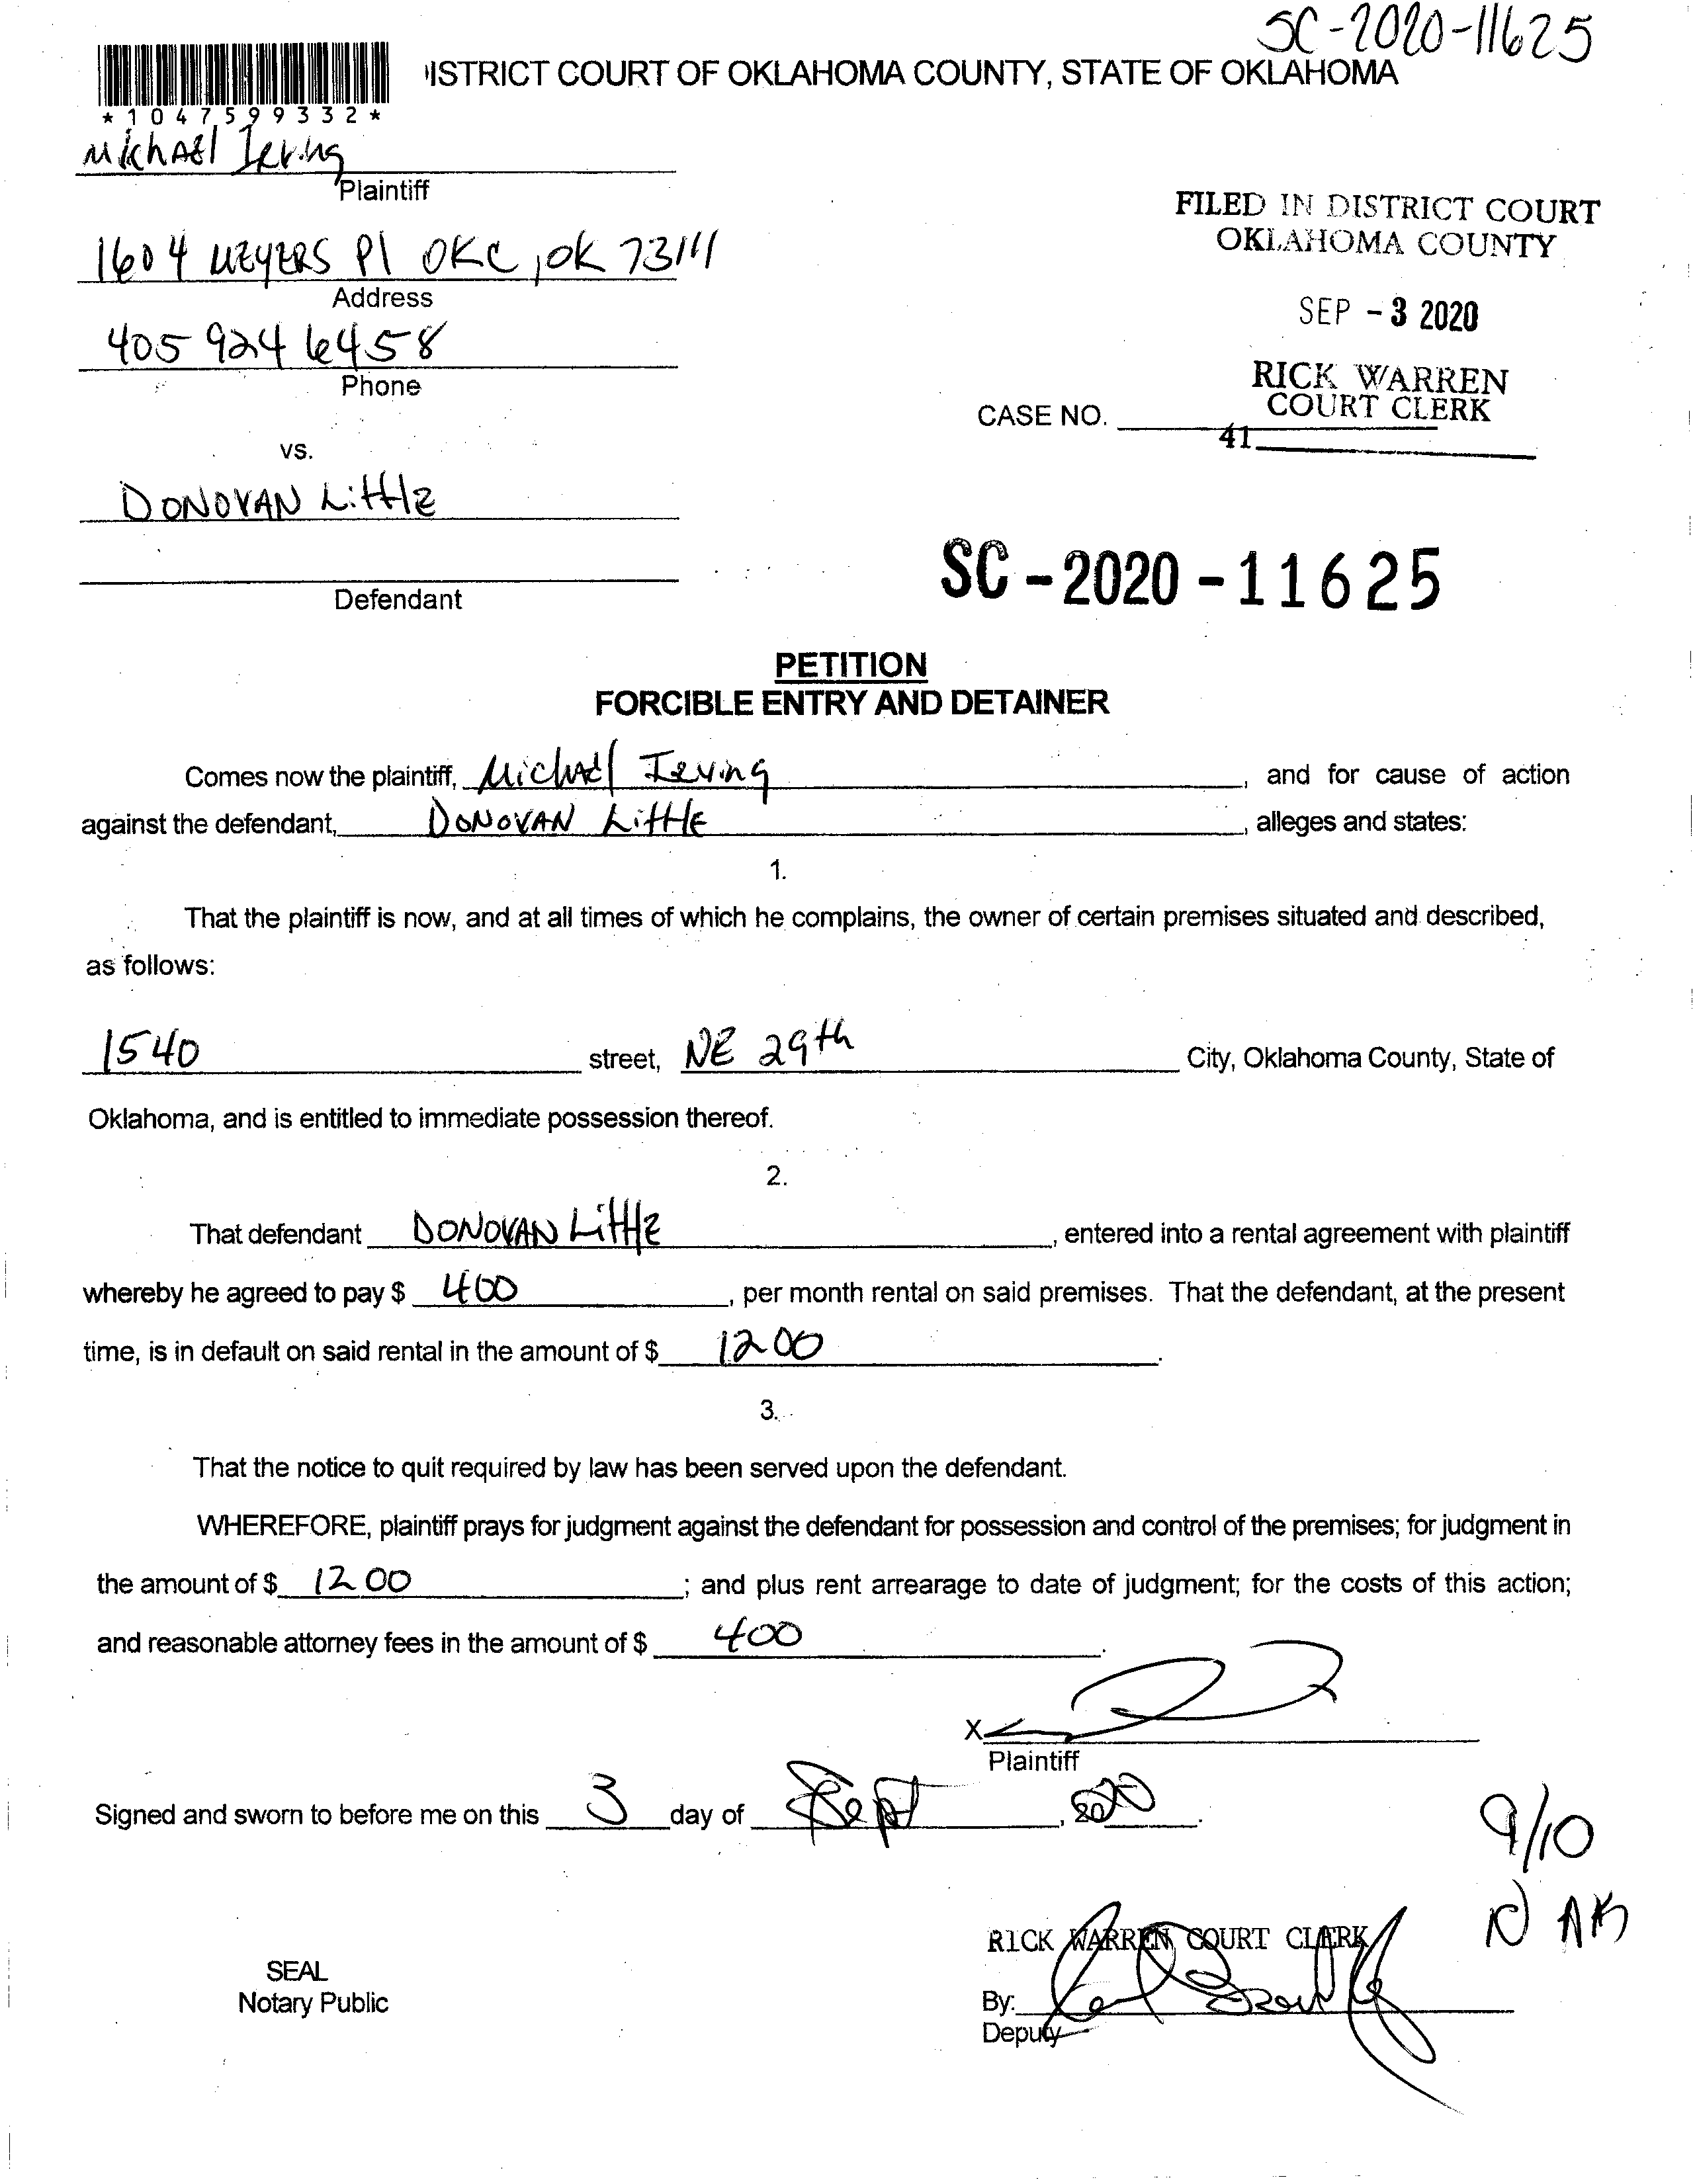 SC-2020-11625
ISTRICT COURT OF OKLAHOMA COUNTY, STATE OF OKLAHOMA
*1047599332*
Michael Irving
Plaintiff
FILED IN DISTRICT COURT
OKLAHOMA COUNTY
1604 Meyers Pl OKC, OK 73111
Address
SEP - 3 2020
405 924 6458
Phone
RICK WARREN
COURT CLERK
CASE NO.
41
vs.
DONOVAN Little
Defendant
SC - 2020 - 11625
PETITION
FORCIBLE ENTRY AND DETAINER
Comes now the plaintiff, Michael Irving, and for cause of action
against the defendant, DONOVAN Little, alleges and states:
1.
That the plaintiff is now, and at all times of which he complains, the owner of certain premises situated and described,
as follows:
1540 street, NE 29th City, Oklahoma County, State of
Oklahoma, and is entitled to immediate possession thereof.
2.
That defendant DONOVAN Little, entered into a rental agreement with plaintiff
whereby he agreed to pay $ 400, per month rental on said premises. That the defendant, at the present
time, is in default on said rental in the amount of $ 1200.
3.
That the notice to quit required by law has been served upon the defendant.
WHEREFORE, plaintiff prays for judgment against the defendant for possession and control of the premises; for judgment in
the amount of $ 1200; and plus rent arrearage to date of judgment; for the costs of this action;
and reasonable attorney fees in the amount of $ 400.
X
Plaintiff
Signed and sworn to before me on this 3 day of Sept, 2020.
9/10
RICK WARREN, COURT CLERK
SEAL
Notary Public
By:
Deputy